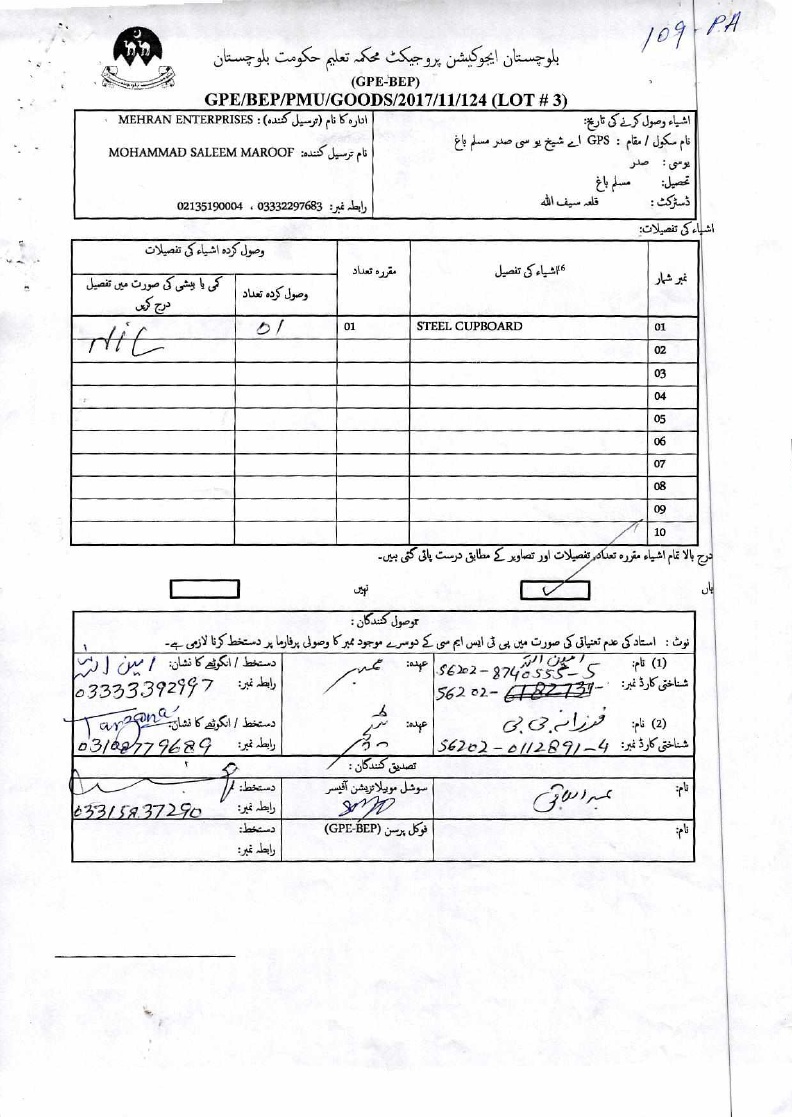 109-PA
بلوچستان ایجوکیشن پروجیکٹ محکمہ تعلیم حکومت بلوچستان
(GPE-BEP)
GPE/BEP/PMU/GOODS/2017/11/124 (LOT # 3)
اشیاء وصول کرنے کی تاریخ:
نام سکول / مقام : GPS اے شیخ یو سی صدر مسلم باغ
یو سی : صدر
تحصیل: مسلم باغ
ڈسٹرکٹ : قلعہ سیف اللہ
ادارہ کا نام (ترسیل کنندہ) : MEHRAN ENTERPRISES
نام ترسیل کنندہ: MOHAMMAD SALEEM MAROOF
رابطہ نمبر: 03332297683 ، 02135190004
اشیاء کی تفصیلات:
نمبر شمار
اشیاء کی تفصیل16
مقررہ تعداد
وصول کردہ اشیاء کی تفصیلات
وصول کردہ تعداد
کمی یا بیشی کی صورت میں تفصیل درج کریں
01 STEEL CUPBOARD 01 01 NIL
02
03
04
05
06
07
08
09
10
درج بالا تمام اشیاء مقررہ تعداد، تفصیلات اور تصاویر کے مطابق درست پائی گئی ہیں۔
ہاں ✓ نہیں
وصول کنندگان :
نوٹ : استاد کی عدم تعیناتی کی صورت میں پی ٹی ایس ایم سی کے دوسرے موجود ممبر کا وصولی پرفارما پر دستخط کرنا لازمی ہے۔
(1) نام: امین اللہ عہدہ: دستخط / انگوٹھے کا نشان: امین اللہ
56202-8740555-5
شناختی کارڈ نمبر: 56202- رابطہ نمبر: 03333392997
(2) نام: فرزانہ بی بی عہدہ: دستخط / انگوٹھے کا نشان: Farzana
شناختی کارڈ نمبر: 56202-0112891-4 رابطہ نمبر: 03108779689
تصدیق کنندگان :
نام: عبدالباقی سوشل موبیلائزیشن آفیسر دستخط:
رابطہ نمبر: 03315837290
نام: فوکل پرسن (GPE-BEP) دستخط:
رابطہ نمبر: